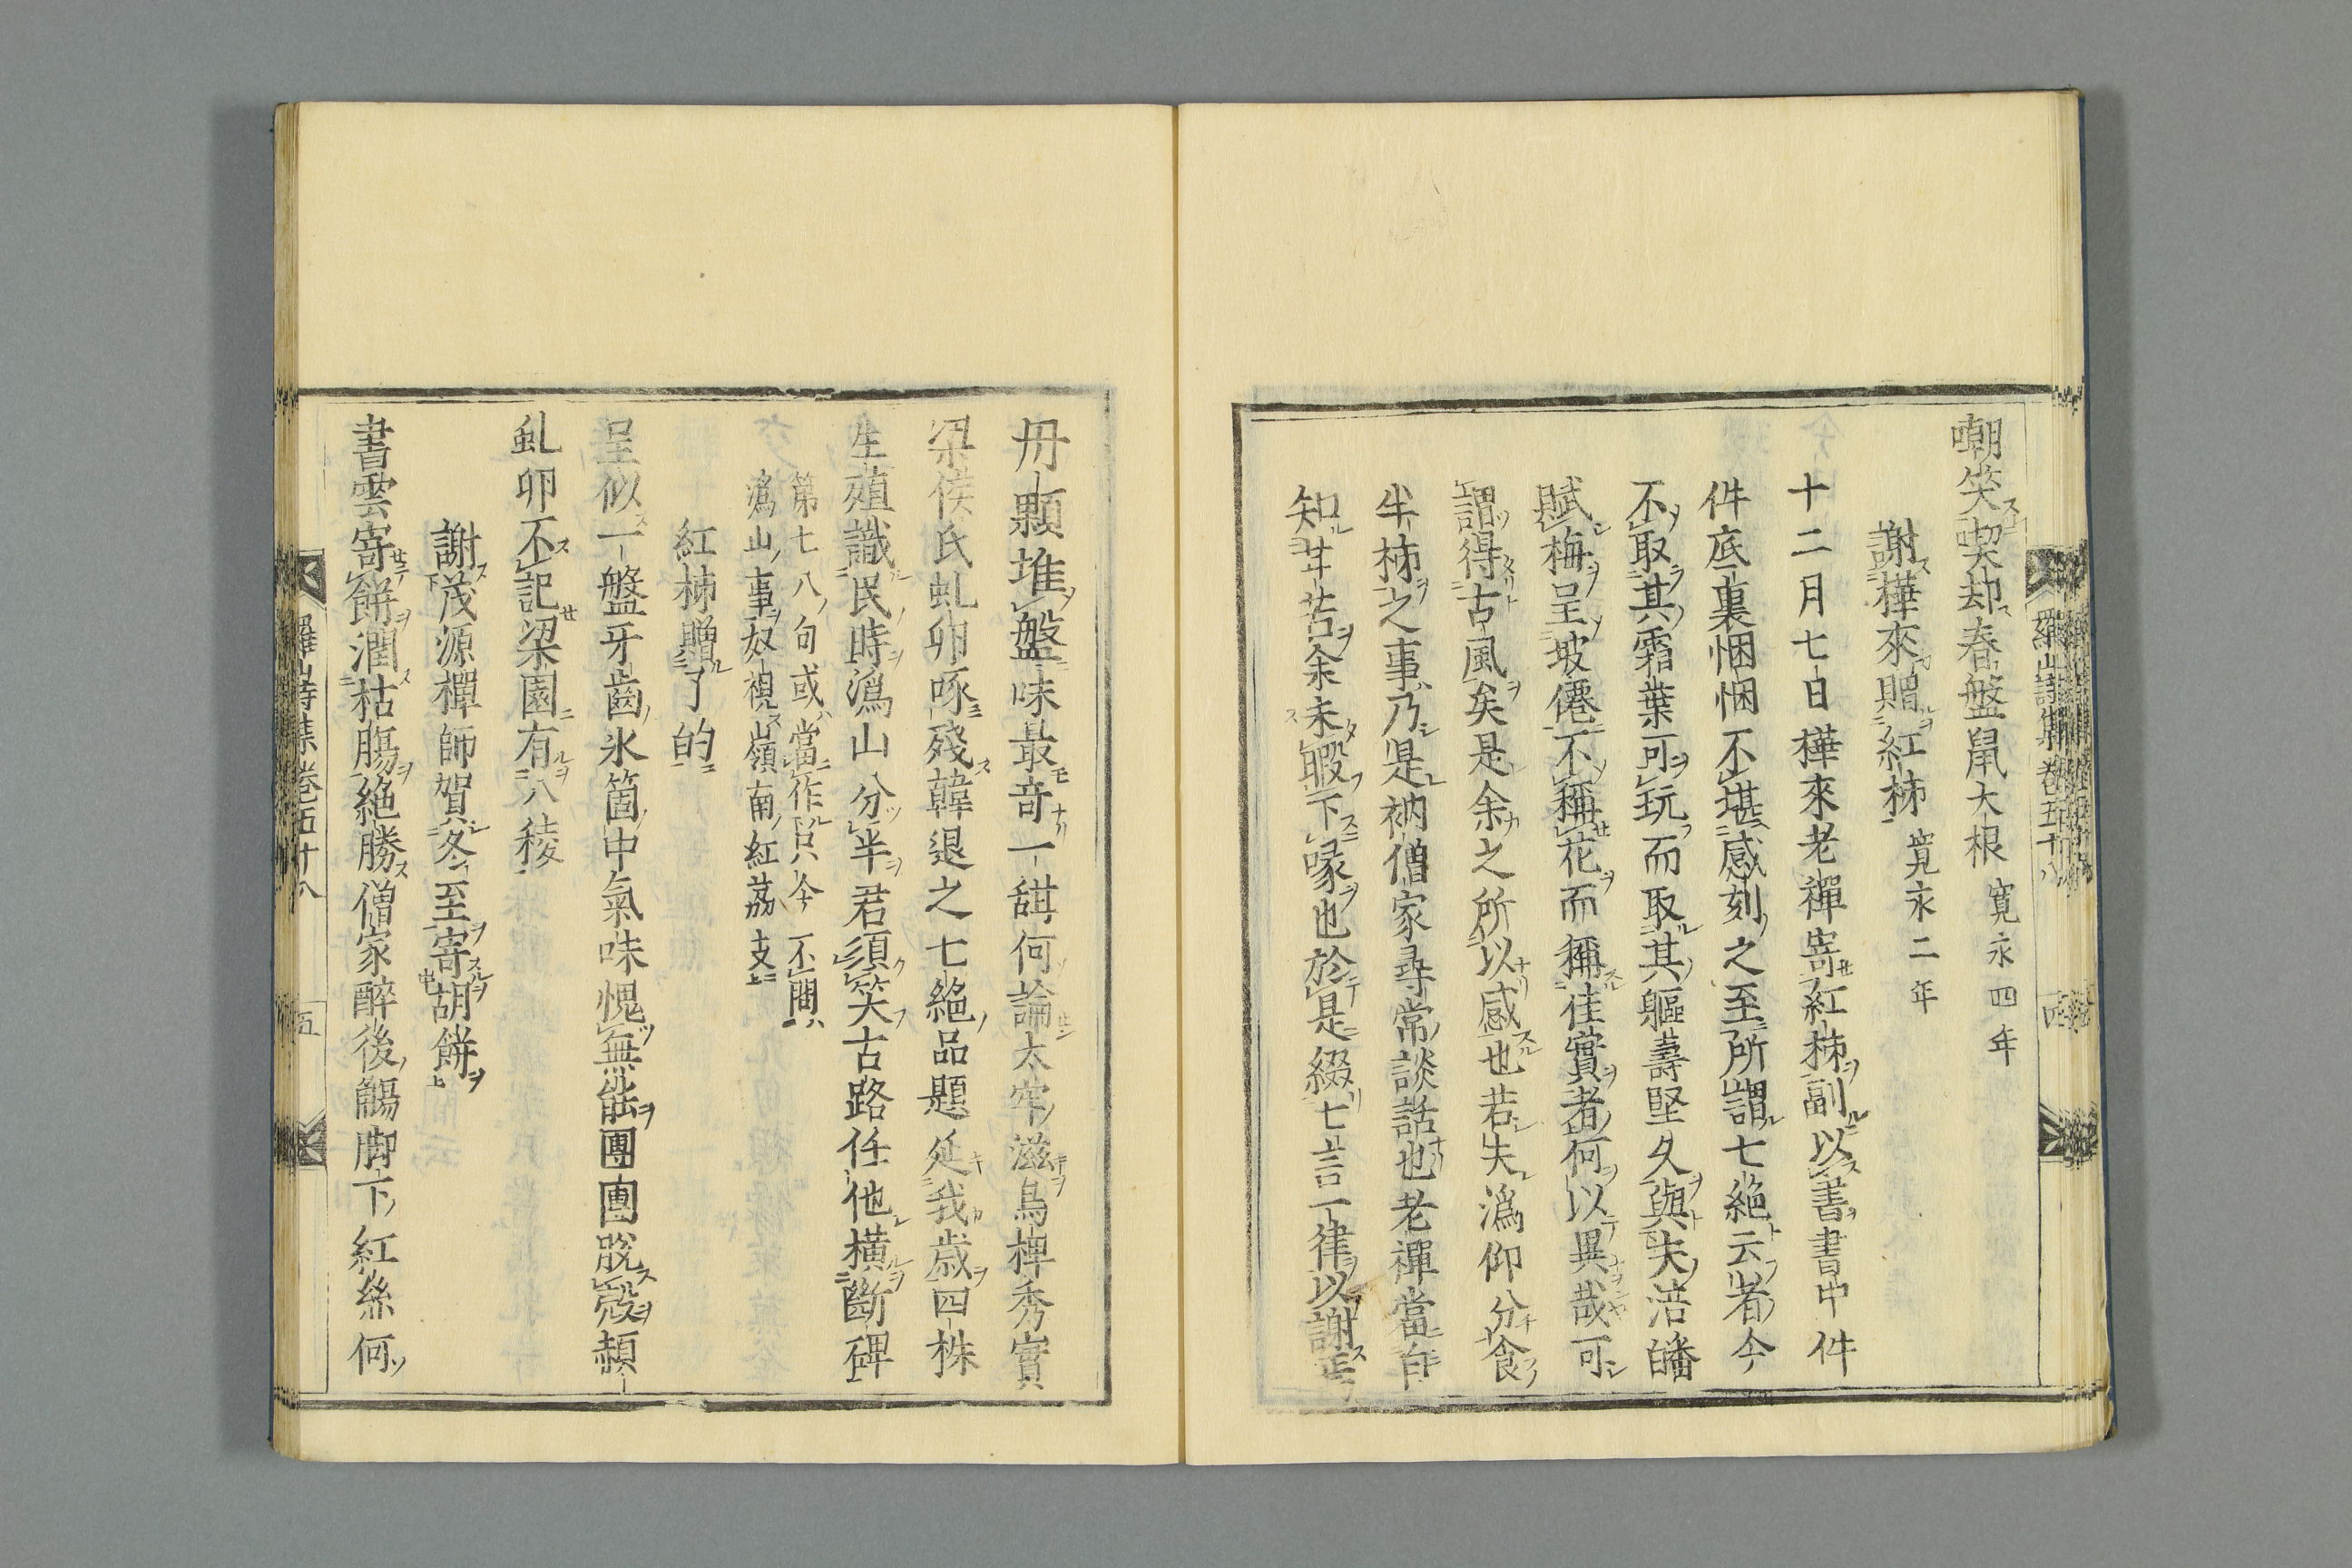 嘲笑喫却春盤鼠大根 寛永四年
謝樺來贈紅柿 寛永二年
十二月七日樺來老禪寄紅柿副以書書中件
件底裏悃悃不堪感刻之至所謂七絶云者今
不取其霜葉可玩而取其軀壽堅久與夫涪皤
賦梅呈坡僊不稱花而稱佳實者何以異哉可
謂得古風矣是余之所以感也若夫潙仰分食
半柿之事乃是衲僧家尋常談話也老禪當自
知甘苦余未暇下喙也於是綴七言一律以謝焉
丹顆堆盤味最奇一甜何論太牢滋烏椑秀實
梁侯氏虬卵啄殘韓退之七絶品題延我歳四株
生殖識民時潙山分半君須笑古路任他橫斷碑
第七八句或當作只今不問
潙山事奴視嶺南紅荔支
紅柿贈了的
呈似一盤牙齒氷箇中氣味愧無能團團脫殼頳
虬卵不記梁園有八稜
謝茂源禪師賀冬至寄胡餅
書雲寄餅潤枯腸絶勝僧家醉後觴脚下紅絲何
羅山詩集卷五十八
羅山詩集卷五十八 五